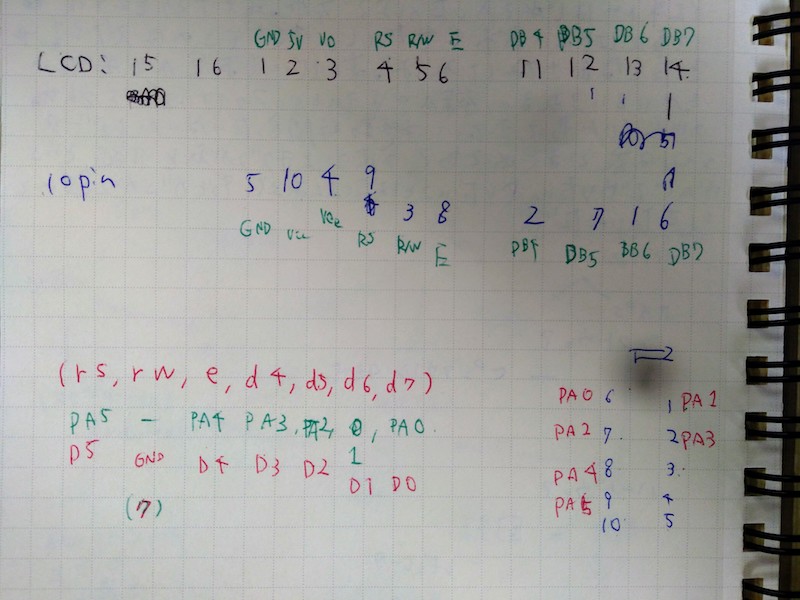 GND 5V VO RS R/W E DB4 DB5 DB6 DB7
LCD: 15 16 1 2 3 4 5 6 11 12 13 14
10 pin 5 10 4 9
3 8 2 7 1 6
GND Vcc Vee RS R/W E DB4 DB5 DB6 DB7
(rs, rw, e, d4, d5, d6, d7)
PA5 - PA4 PA3, PA2, 0, PA0.
1
D5 GND D4 D3 D2 D1 D0
(7)
PA0 6 1 PA1
PA2 7 2 PA3
PA4 8 3
PA5 9 4
10 5